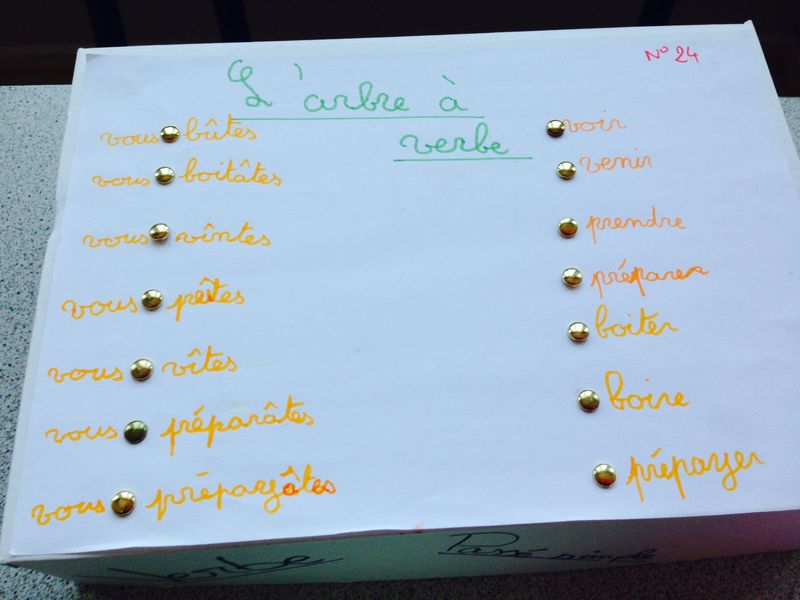 N° 24
L'arbre à
verbe
vous bûtes
voir
vous boitâtes
venir
vous vîntes
prendre
vous
préparer
vous vîtes
boiter
vous préparâtes
boire
vous prépayâtes
prépayer
Verbe
Passé simple